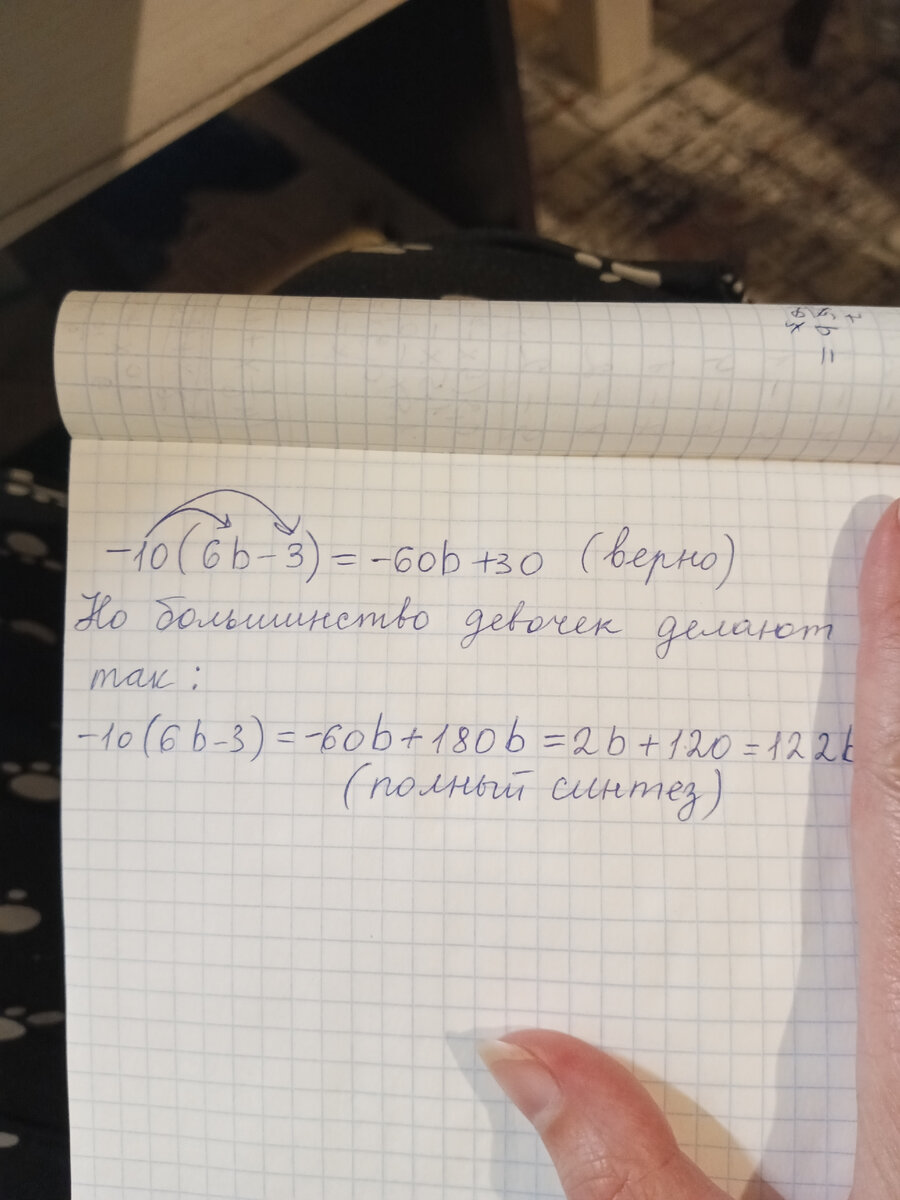 -10(6b-3)=-60b+30 (верно)
Но большинство девочек делают
так:
-10(6b-3)=-60b+180b=2b+120=122b
(полный синтез)